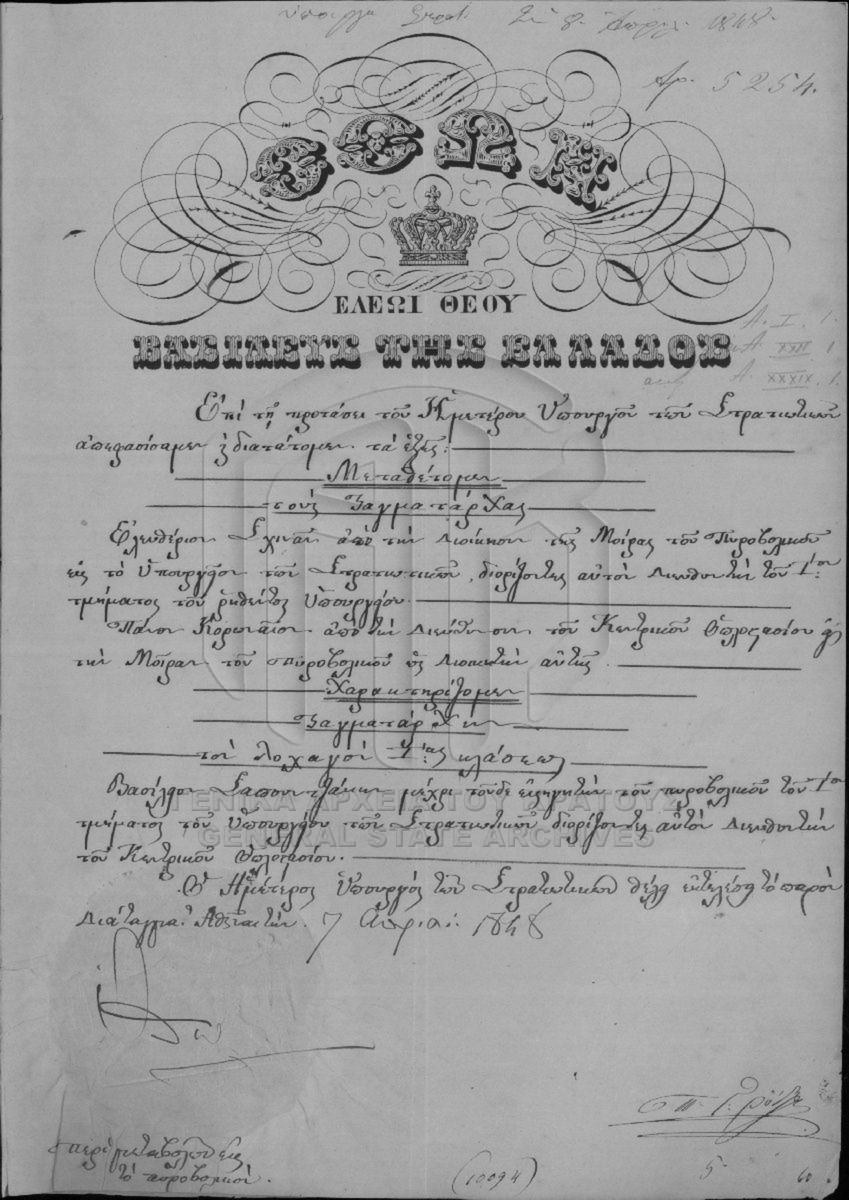 Ἀρ. 5254.
ΟΘΩΝ
ΕΛΕΩΙ ΘΕΟΥ
ΒΑΣΙΛΕΥΣ ΤΗΣ ΕΛΛΑΔΟΣ
A. I. 1.
A. XXII 1
A. XXXIX. 1.
Ἐπὶ τῇ προτάσει τοῦ Ἡμετέρου Ὑπουργοῦ τῶν Στρατιωτικῶν
ἀπεφασίσαμεν ϗ διατάττομεν τὰ ἑξῆς:
Μεταθέτομεν
τοὺς Ταγματάρχας
Ἐλευθέριον Σχινᾶν ἀπὸ τὴν Διοίκησιν τῆς Μοίρας τοῦ Πυροβολικοῦ
εἰς τὸ Ὑπουργεῖον τῶν Στρατιωτικῶν, διορίζοντες αὐτὸν Διευθυντὴν τοῦ 1ου
τμήματος τοῦ ῥηθέντος Ὑπουργείου.
Πάνον Κορωναῖον ἀπὸ τὴν Διεύθυνσιν τοῦ Κεντρικοῦ Ὁπλοστασίου εἰς
τὴν Μοῖραν τοῦ πυροβολικοῦ ὡς Διοικητὴν αὐτῆς.
Χαρακτηρίζομεν
Ταγματάρχην
τὸν λοχαγὸν 1ης κλάσεως
Βασίλειον Σαπουντζάκην μέχρι τοῦδε εἰσηγητὴν τοῦ πυροβολικοῦ τοῦ 1ου
τμήματος τοῦ Ὑπουργείου τῶν Στρατιωτικῶν διορίζοντες αὐτὸν Διευθυντὴν
τοῦ Κεντρικοῦ Ὁπλοστασίου.
Ὁ Ἡμέτερος Ὑπουργὸς τῶν Στρατιωτικῶν θέλει ἐκτελέσει τὸ παρὸν
Διάταγμα. Ἀθῆναι τὴν 7 Ἀπριλ. 1848
Ὄθων
περὶ μεταβολῶν εἰς
τὸ πυροβολικόν.
(10094)
5
60
ΓΕΝΙΚΑ ΑΡΧΕΙΑ ΤΟΥ ΚΡΑΤΟΥΣ
GENERAL STATE ARCHIVES